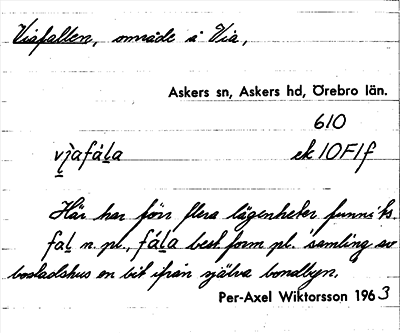 Viafallen, område i Via,
Askers sn, Askers hd, Örebro län.
610
vjafála ek 10F1f
Här har förr flera lägenheter funnits.
fal n. pl., fála best. form pl. samling av
bostadshus en bit ifrån själva bondbyn.
Per-Axel Wiktorsson 1963